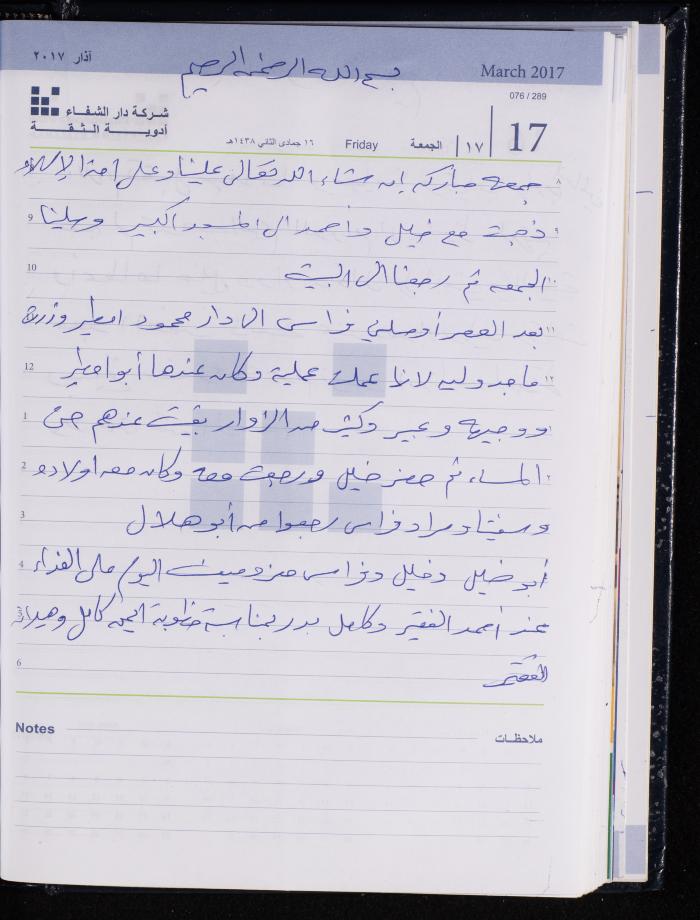 آذار ٢٠١٧
بسم الله الرحمن الرحيم
March 2017
076 / 289
شركة دار الشفاء
أدويــة الـثـقــة
١٦ جمادى الثاني ١٤٣٨هـ
Friday
الجمعة
١٧
17
جمعه مباركه إن شاء الله تعالى علينا وعلى امة الإسلام
9 ذهبت مع خليل وأحمد الى المسجد الكبير وصلينا
10 الجمعه ثم رجعنا الى البيت
بعد العصر أوصلني فراس الى دار محمود امطير وزرت
12 ماجدوليه لانها عملت عملية وكان عندها أبو امطير
1 ووجيهه وعبير وكثير من الزوار بقيت عندهم حتى
2 المساء ثم حضر خليل ورجعت معه وكان معه اولاده
3 وسيتا ومراد فراس رجعوا من أبو هلال
4 أبو خليل وخليل وفراس معزومين اليوم على الغداء
5 عند أحمد الفقير وكامل بدر بمناسبة خطوبة ايمن كامل
6 الفقير
Notes
ملاحظات